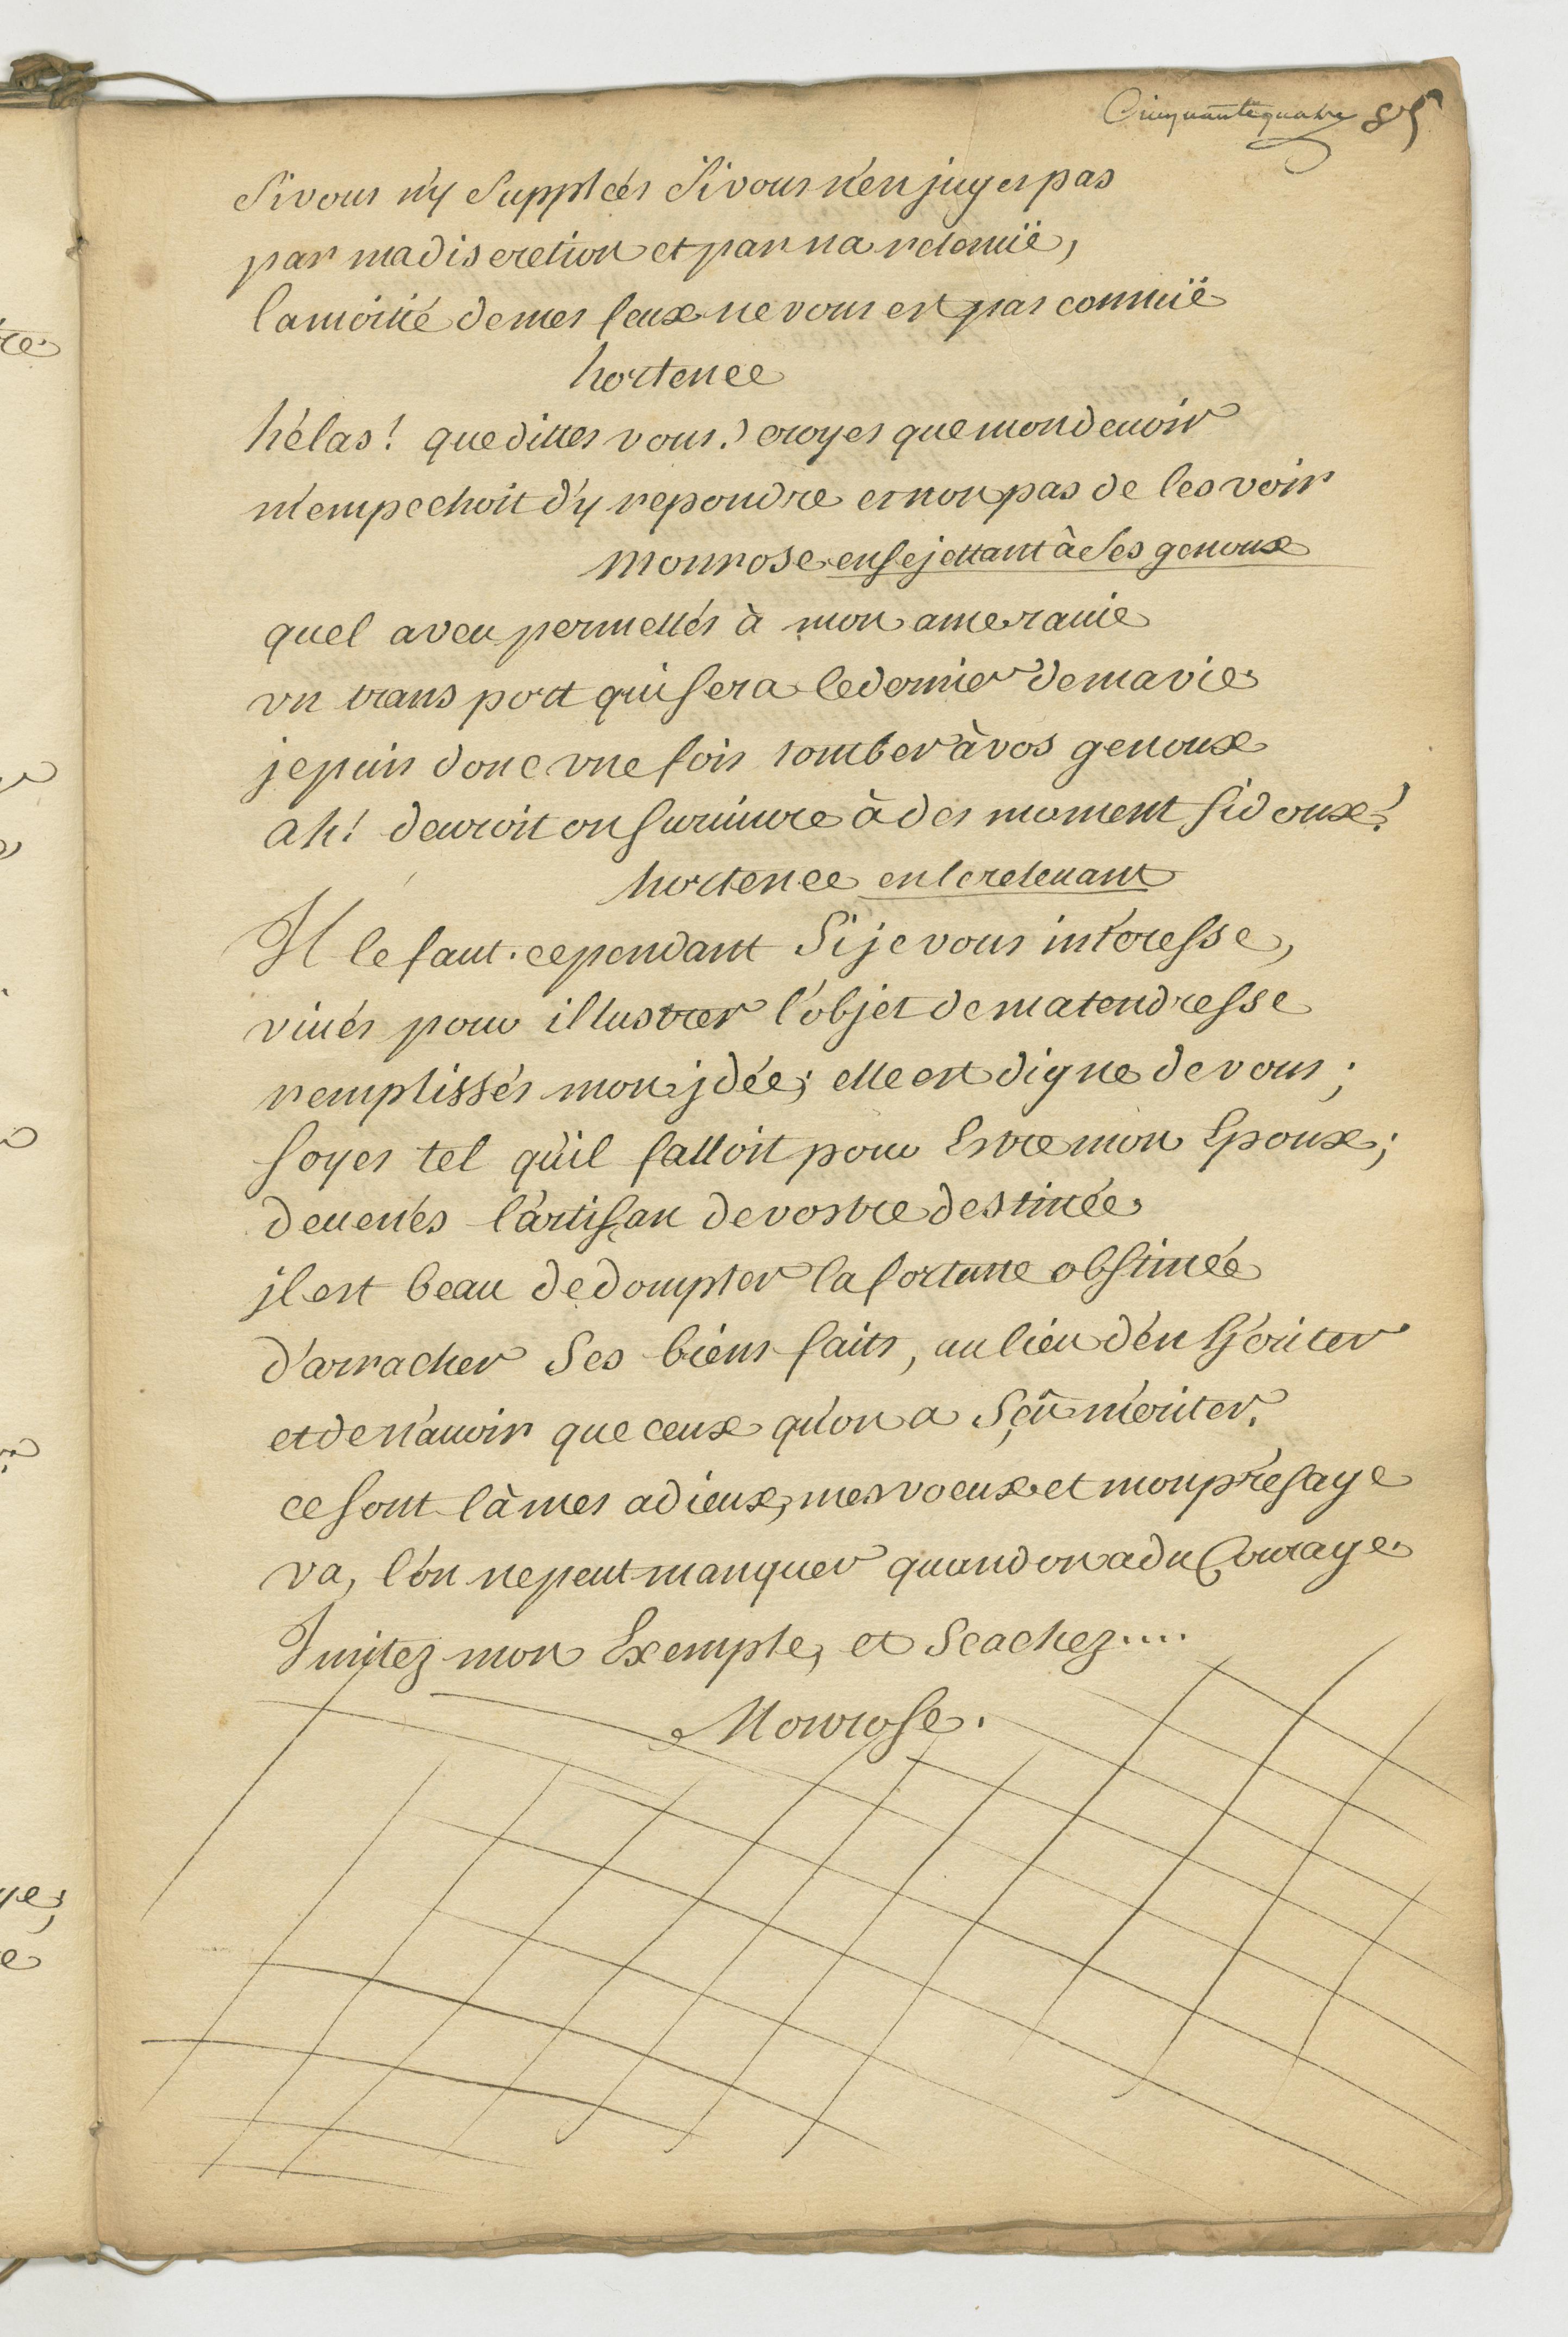 Cinquante quatre 85
Si vous n'y Supplées Si vous n'en juges pas
par ma discretion et par ma retenuë,
la moitié de mes feux ne vous est pas connuë
hortence
hélas! que dittes vous? croyes que mon deuoir
m'empechoit d'y repondre et non pas de les voir
monrose en se jettant à Ses genoux
quel aveu permettés à mon ame rauie
vn transport qui sera le dernier de ma vie
je puis donc vne fois tomber à vos genoux
ah! deuroit on suruiure à des moment si doux?
hortence en le releuant
Il le faut. cependant Si je vous intéresse,
viués pour illustrer l'objet de ma tendresse
remplissés mon jdée; elle est digne de vous;
soyes tel qu'il falloit pour Estre mon Epoux;
deuenés l'artisan de vostre destinée
jl est beau de dompter la fortune obstinée
d'arracher Ses bienfaits, au lieu d'en hériter
et de n'auoir que ceux qu'on a Sçû mériter.
ce sont là mes adieux, mes voeux et mon présage
va, l'on ne peut manquer quand on a du Courage
Imitez mon Exemple, et Scachez....
Monrose.